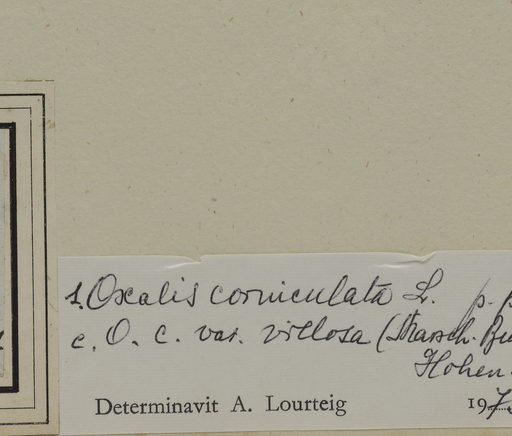 s. Oxalis corniculata L. p. p
c. O. c. var. villosa (Marsch. Bi
Hohen.
Determinavit A. Lourteig 197